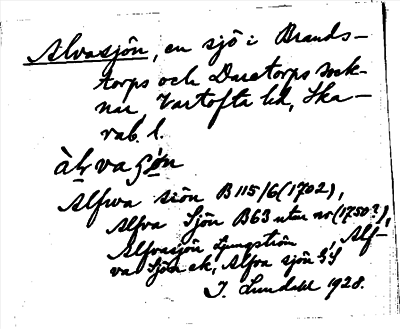 Alvasjön, en sjö i Brands-
torps och Daretorps sock-
nar Vartofta hd, Ska-
rab. l.
àlvaʃön
Alfwa siön B115/6 (1702),
Alfva Sjön B63 utan nr (1750?),
Alfvasjön Ljungström, Alf-
va Sjön ek, Alfva sjön GS
J. Lundahl 1928.